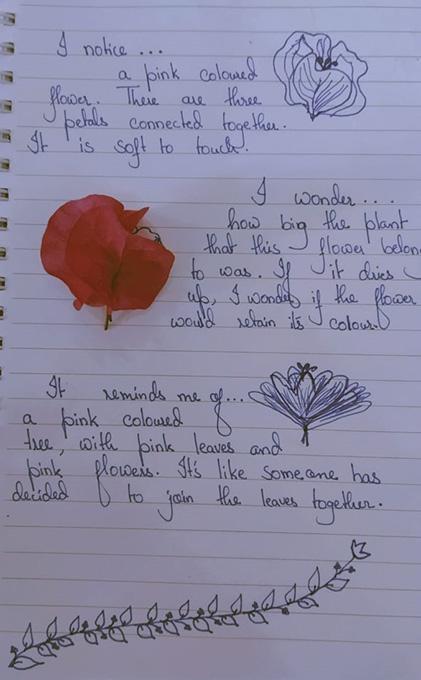 I notice ...
a pink coloured
flower. There are three
petals connected together.
It is soft to touch.
I wonder....
how big the plant
that this flower belon
to was. If it dries
up, I wonder if the flower
would retain it's colour.
It reminds me of...
a pink coloured
tree, with pink leaves and
pink flowers. It's like someone has
decided to join the leaves together.